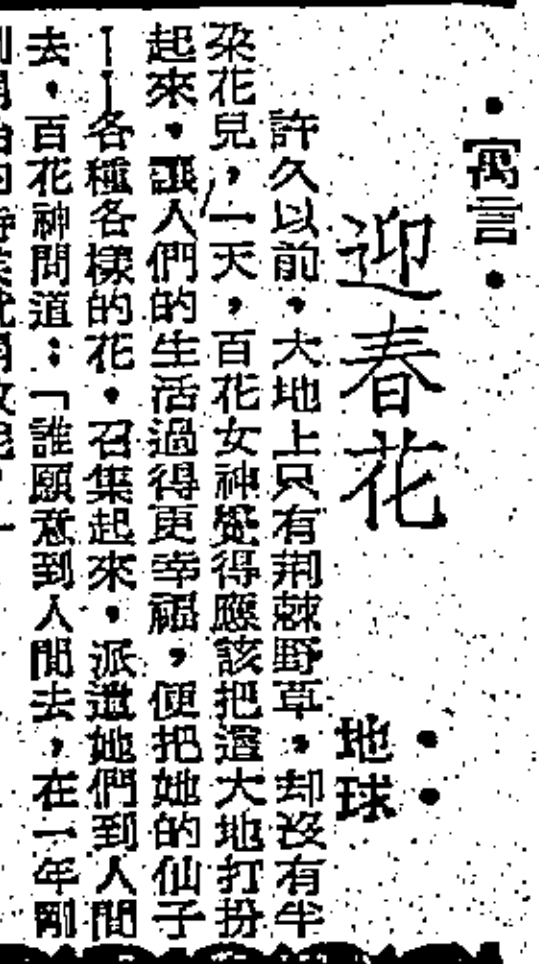 •寓言•
迎春花
••地球
許久以前，大地上只有荆棘野草，却沒有半
朶花兒，一天，百花女神覺得應該把這大地打扮
起來，讓人們的生活過得更幸福，便把她的仙子
——各種各樣的花，召集起來，派遣她們到人間
去，百花神問道：「誰願意到人間去，在一年剛